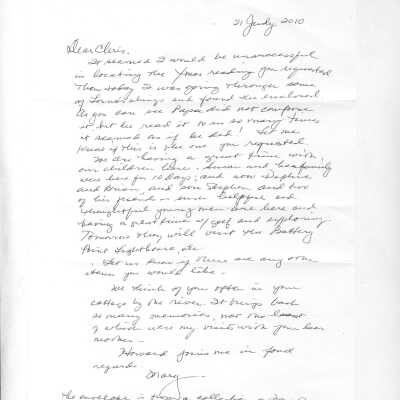 21 July 2010
Dear Chris,
It seemed I would be unsuccessful
in locating the Xmas reading you requested.
Then today I was going through some
of Lorna's things and found the enclosed.
As you can see Papa did not compose
it but he read it to us so many times
it seemed as if he did! Let me
know if this is the one you requested.
We are having a great time with
our children here. Susan and her family
were here for 10 days; and now Daphne
and Brian, and son Stephen and two
of his friends - such helpful and
thoughtful young men are here and
having a great time and exploring.
Tomorrow they will visit the Battery
Point Lighthouse etc
Let us know if there are any other
items you would like.
We think of you often in your
cottage by the river. It brings back
so many memories, not the least
of which were my visits with your dear
mother.
Howard joins me in fond
regards.
Mary
The envelope is from a collection